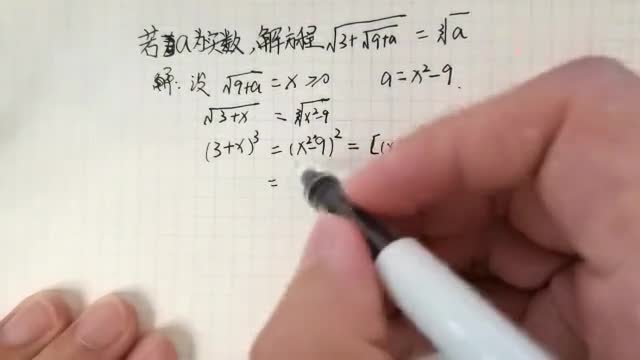 若a为实数,解方程√(3+√(9+a)) = ∛a
解:设 √(9+a) = x ≥0 a=x²-9.
√(3+x) = ∛(x²-9)
(3+x)³ = (x²-9)² = [(x
=